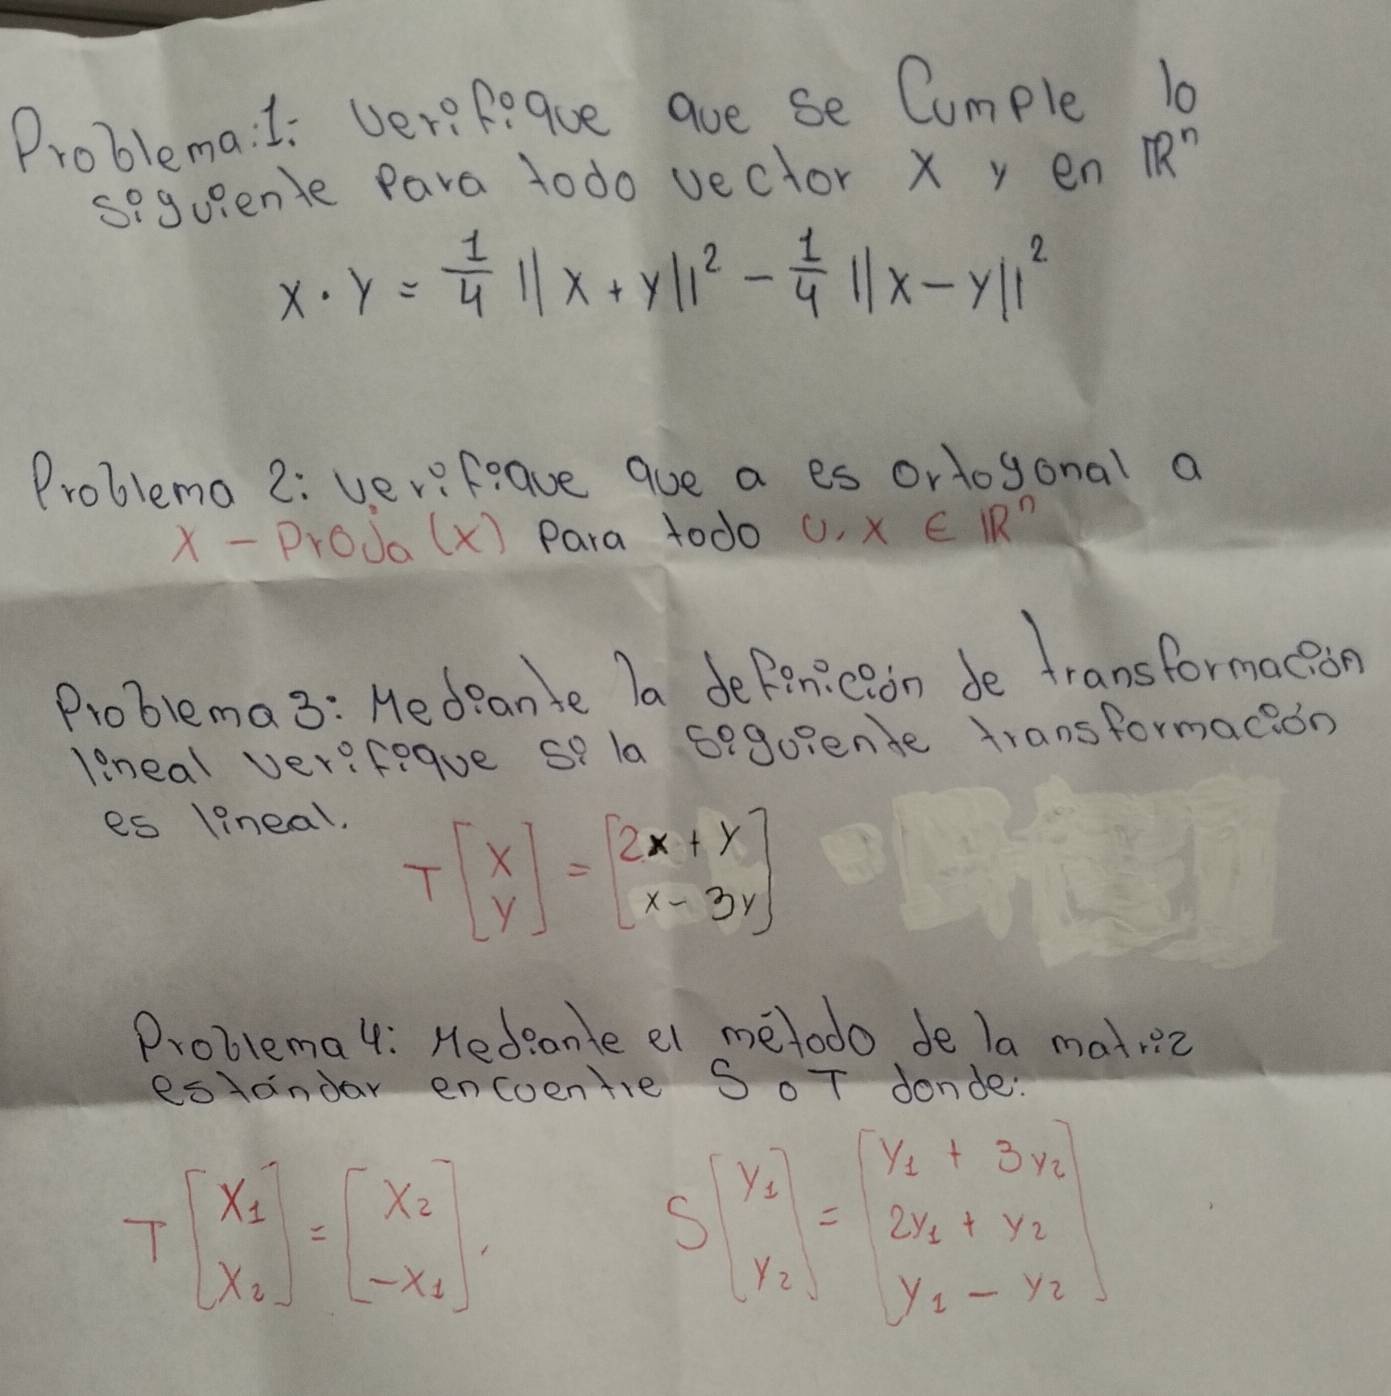 Problema:1: Verifique que se Cumple lo
siguiente Para todo vector X y en ℝⁿ
X · Y = 1/4 ||X + Y||² - 1/4 ||X - Y||²
Problema 2: Verifique que a es Ortogonal a
X - Proja (X) Para todo U, X ∈ ℝⁿ
Problema 3: Mediante la definición de transformación
lineal verifique si la siguiente transformación
es lineal.
T [X; Y] = [2x + y; x - 3y]
Problema 4: Mediante el método de la matriz
estándar encuentre S o T donde:
T [X₁; X₂] = [X₂; -X₁], S [Y₁; Y₂] = [Y₁ + 3Y₂; 2Y₁ + Y₂; Y₁ - Y₂]